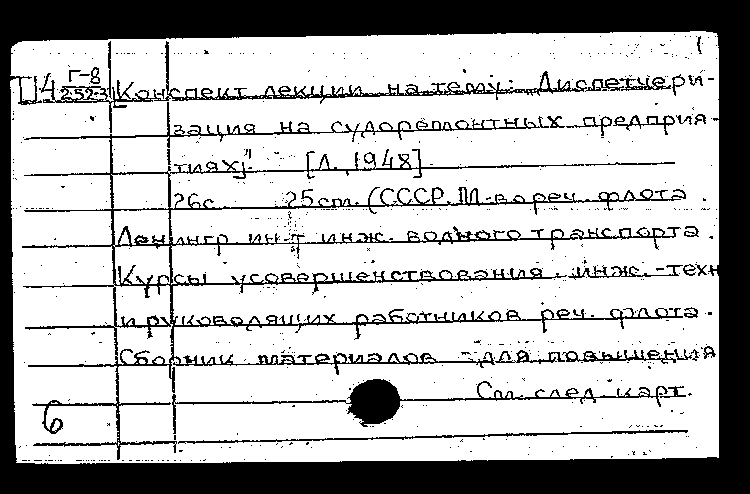 1
П4 Г-8
252-3 Конспект лекции на тему: Диспетчери-
зация на судоремонтных предприя-
тиях". [Л., 1948]
26с. 25 cm. (СССР. М-во реч. флота.
Ленингр. ин-т инж. водного транспорта.
Курсы усовершенствования инж.-техн
и руководящих работников реч. флота.
Сборник материалов для повышения
См. след. карт.
6